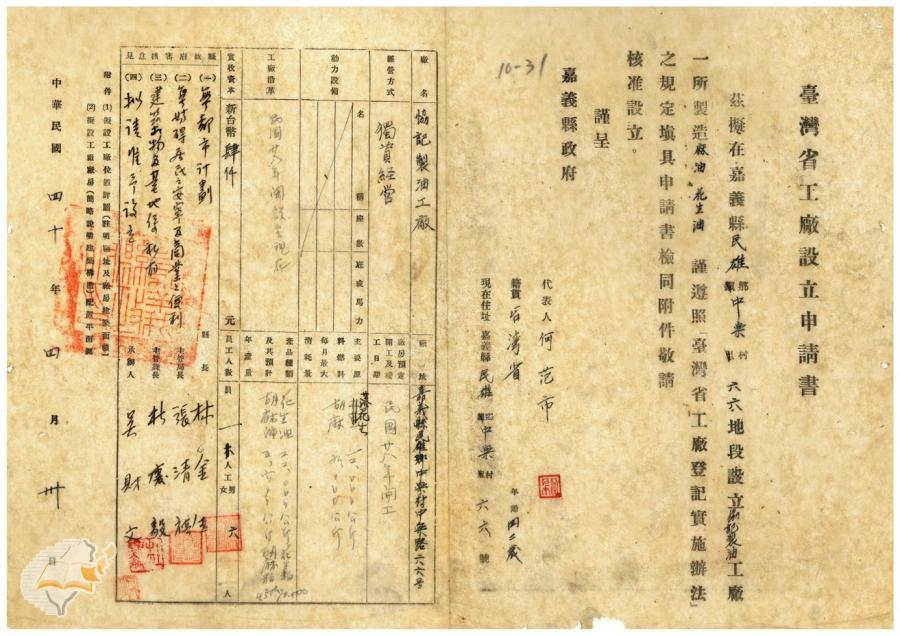 臺灣省工廠設立申請書
茲擬在嘉義縣民雄鄉中樂村六六地段設立協記製油工廠
一所製造麻油花生油謹遵照「臺灣省工廠登記實施辦法」
之規定填具申請書檢同附件敬請
核准設立。
謹呈
嘉義縣政府
10-31
代表人 何范市 年齡四二歲
籍貫 台灣省
現在住址 嘉義縣民雄鄉中樂村六六號
廠名 協記製油工廠
廠址 嘉義縣民雄鄉中樂村中樂路六六号
經營方式 獨資經營
廠房預定開工及竣工日期 民國廿八年開工
動力設備 名稱 座數 匹或馬力
主要原料燃料每月最大消耗量 落花生 胡麻
工廠沿革 民國廿八年開設至現在
產品種類及其預計年產量 花生油 胡麻油
實收資本 新台幣肆仟元
員工人數 員一人 工 男六 女 人
縣政府審核意見
(一)無都市計劃
(二)無妨碍居民之安寧及商業之便利
(三)建築物及基地係私有
(四)擬請准予設立
縣長 林金生
主管局長 張清祺
主管課長 杜慶毅
承辦人 吳財文
附件 (1)擬設工廠位置詳圖(註明廠址及廠房建築面積)
(2)擬設工廠廠房(簡略說明建築構造)配置平面圖
中華民國四十年四月卅日